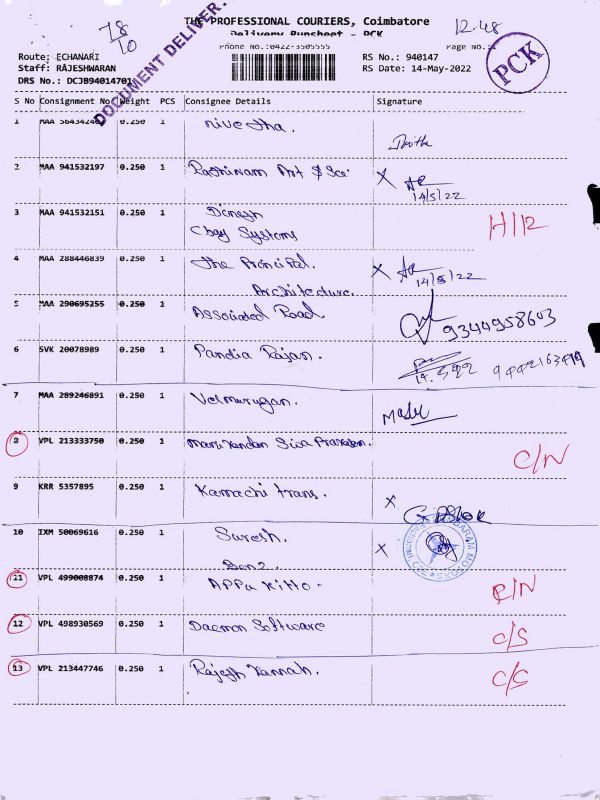 THE PROFESSIONAL COURIERS, Coimbatore
Delivery Runsheet - PCK
12.48
78
10
Phone No.:0422-3505555
Page No.:1
Route: ECHANARI
RS No.: 940147
Staff: RAJESHWARAN
RS Date: 14-May-2022
DRS No.: DCJB94014701
DOCUMENT DELIVER.
PCK
S No Consignment No Weight PCS Consignee Details Signature
1 MAA 0.250 1 nivetha.
2 MAA 941532197 0.250 1 Art & Sci. X
14/5/22
3 MAA 941532151 0.250 1 Dinesh
Cbay Systems
4 MAA 288446839 0.250 1 The Principal. X
14/5/22
Architecture.
5 MAA 290695255 0.250 1 Associated Road. 9344958603
6 SVK 20078989 0.250 1 Pandia Rajan.
7 MAA 289246891 0.250 1 Velmurugan.
8 VPL 213333750 0.250 1 C/N
9 KRR 5357895 0.250 1 Kamachi trans. X
10 IXM 50069616 0.250 1 Suresh. X
11 VPL 499008874 0.250 1
12 VPL 498930569 0.250 1 Daemon Software C/S
13 VPL 213447746 0.250 1 Rajesh Kannah. C/S